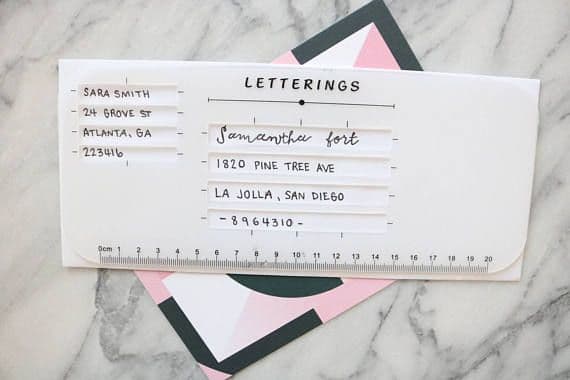 LETTERINGS
SARA SMITH
24 GROVE ST
ATLANTA, GA
223416
Samantha fort
1820 PINE TREE AVE
LA JOLLA, SAN DIEGO
-8964310-
0cm 1 2 3 4 5 6 7 8 9 10 11 12 13 14 15 16 17 18 19 20